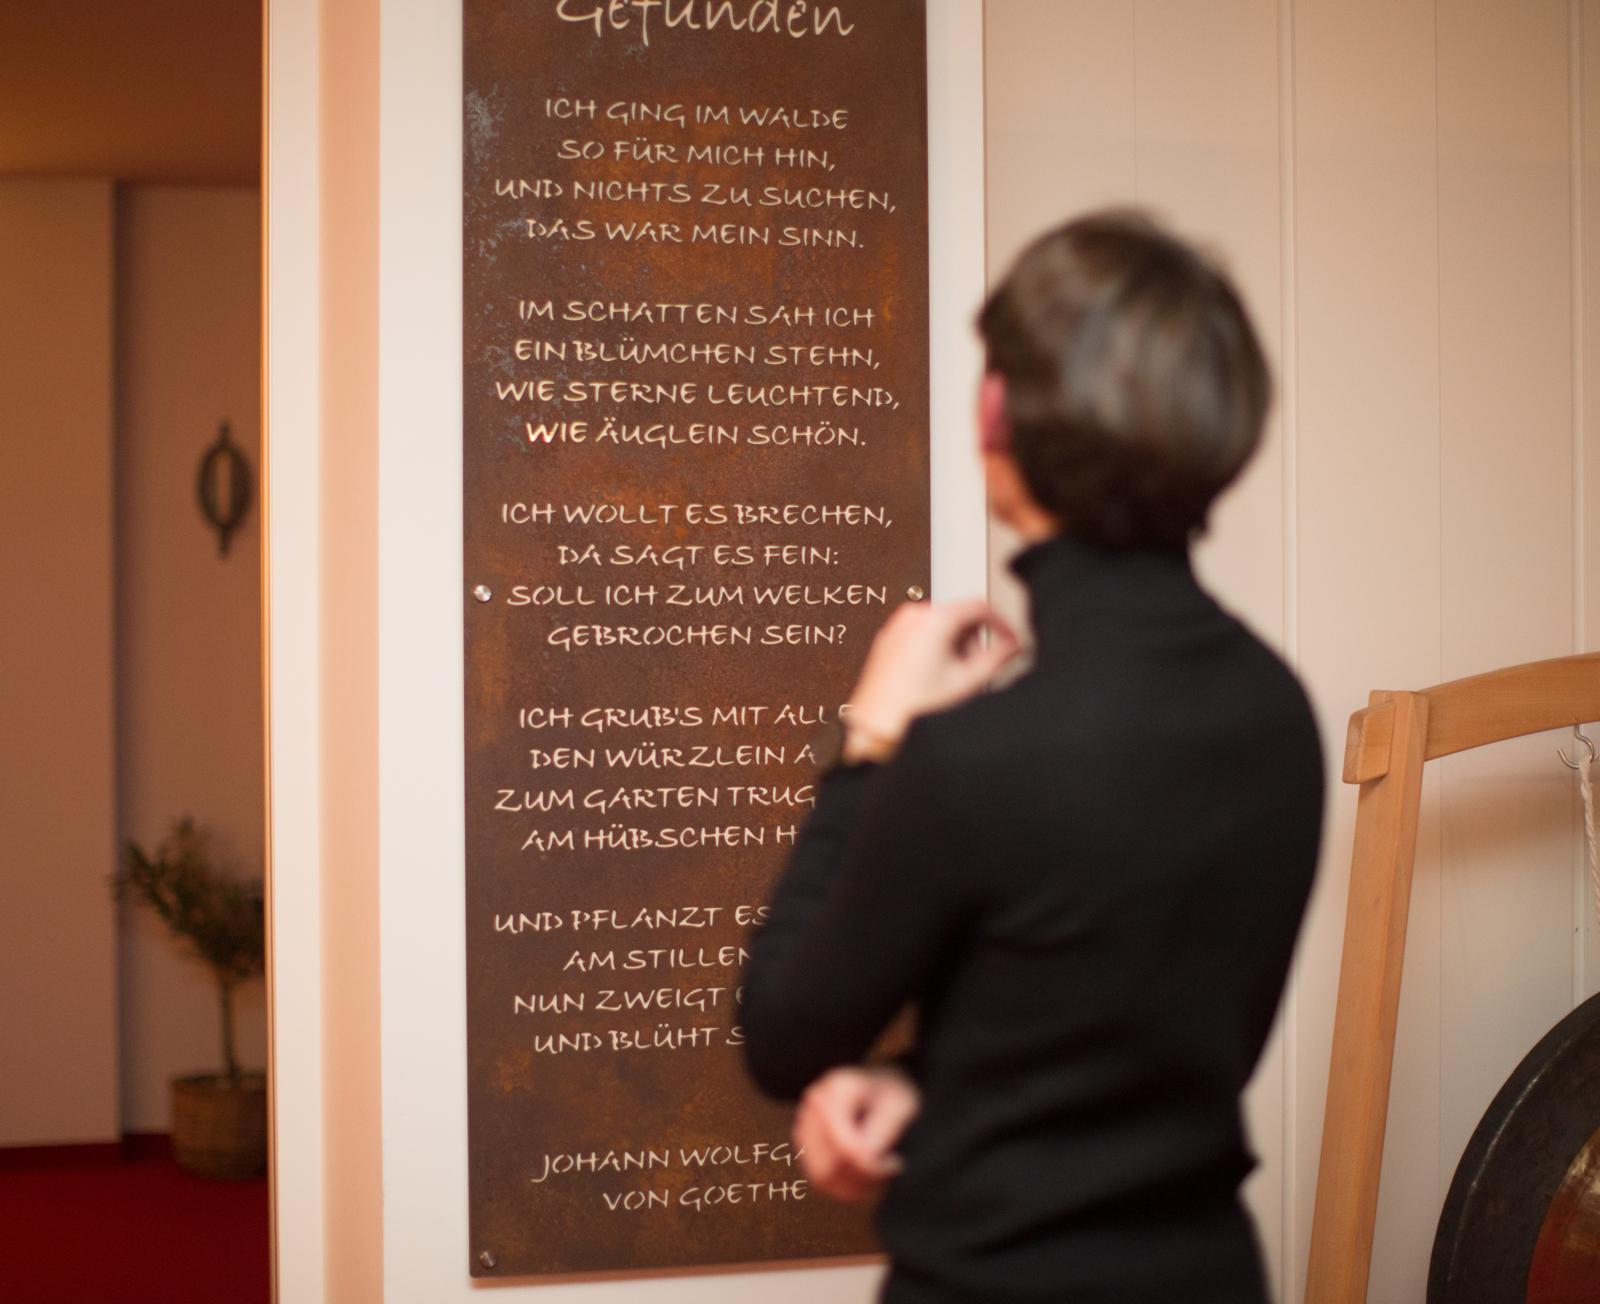 Gefunden
ICH GING IM WALDE
SO FÜR MICH HIN,
UND NICHTS ZU SUCHEN,
DAS WAR MEIN SINN.
IM SCHATTEN SAH ICH
EIN BLÜMCHEN STEHN,
WIE STERNE LEUCHTEND,
WIE ÄUGLEIN SCHÖN.
ICH WOLLT ES BRECHEN,
DA SAGT ES FEIN:
SOLL ICH ZUM WELKEN
GEBROCHEN SEIN?
ICH GRUB'S MIT ALL
DEN WÜRZLEIN
ZUM GARTEN TRUG
AM HÜBSCHEN
UND PFLANZT ES
AM STILLEN
NUN ZWEIGT
UND BLÜHT
JOHANN
VON GOETHE